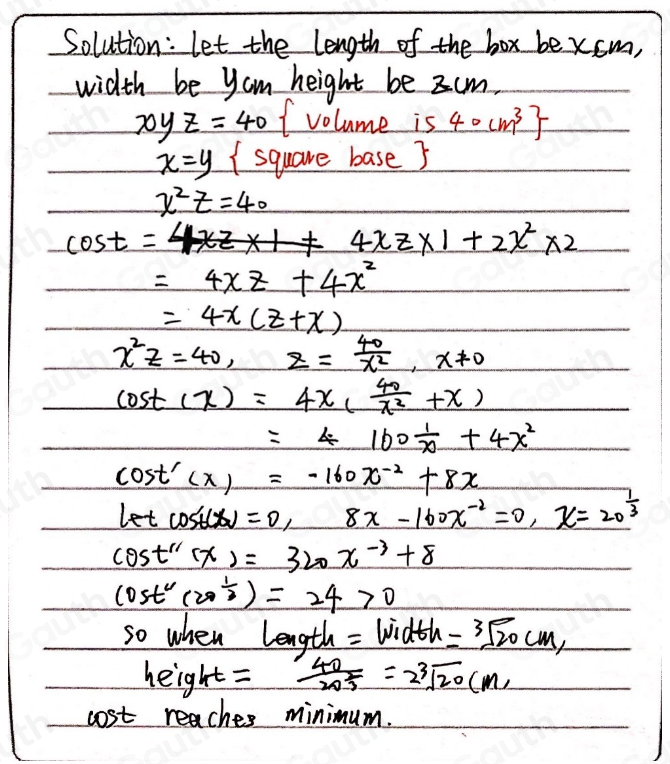 Solution: Let the length of the box be x cm,
width be y cm height be z cm.
xyz = 40 { volume is 40 cm³ }
x = y { square base }
x²z = 40
cost = 4xz × 1 + 4xz × 1 + 2x² × 2
= 4xz + 4x²
= 4x(z+x)
x²z = 40, z = 40/x², x ≠ 0
cost(x) = 4x(40/x² + x)
= 160 1/x + 4x²
cost'(x) = -160x⁻² + 8x
Let cost'(x) = 0, 8x - 160x⁻² = 0, x = 20^(1/3)
cost''(x) = 320x⁻³ + 8
cost''(20^(1/3)) = 24 > 0
so when Length = Width = ³√20 cm,
height = 40/20^(2/3) = 2³√20 cm,
cost reaches minimum.